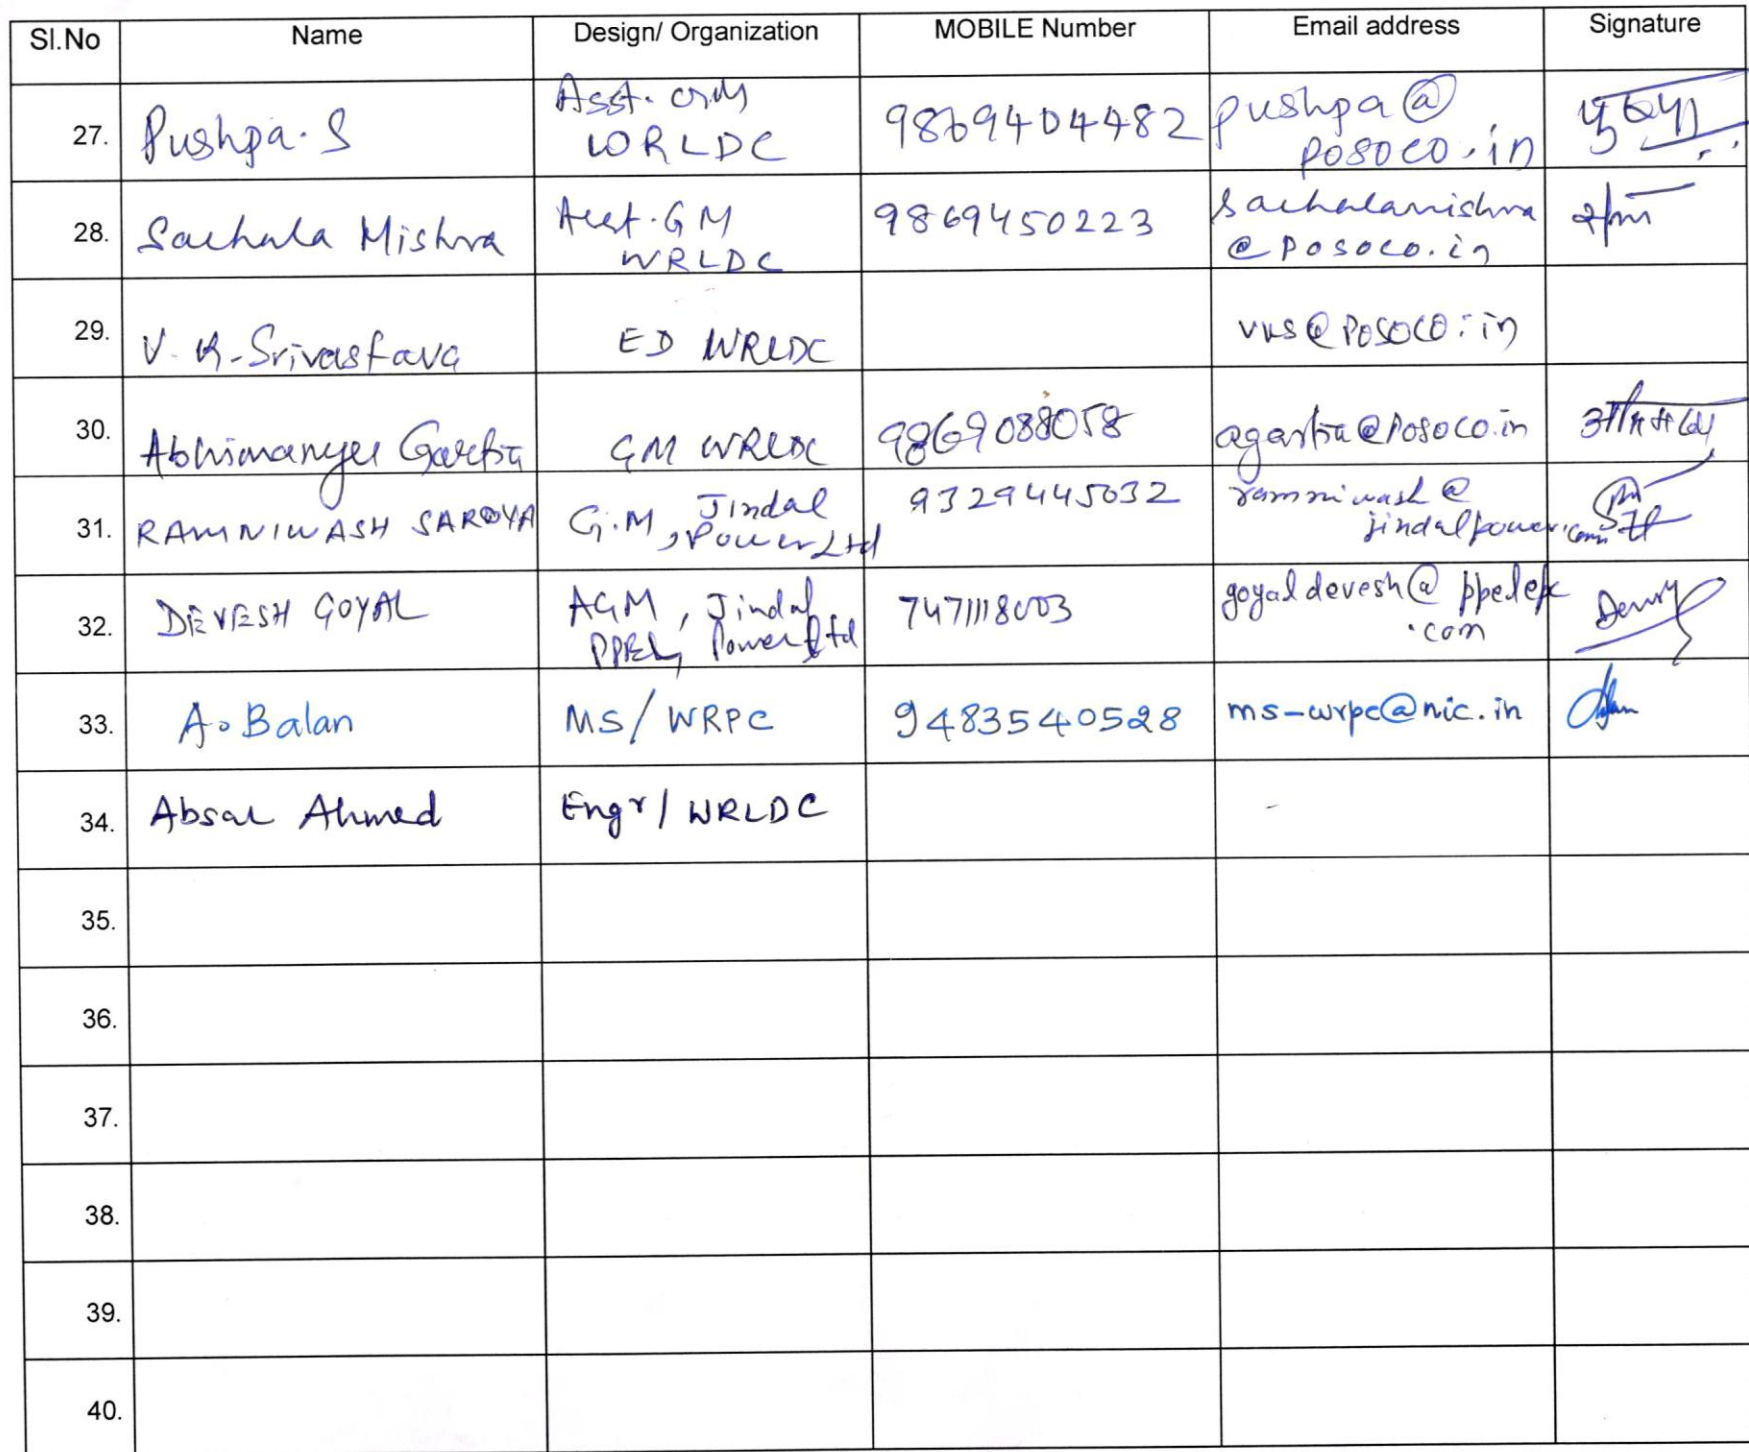 Sl.No Name Design/ Organization MOBILE Number Email address Signature
27. Pushpa. S Asst. GM WRLDC 9869404482 pushpa@ posoco.in
28. Sachala Mishra Asst. GM WRLDC 9869450223 sachalamishra @posoco.in
29. V. K. Srivastava ED WRLDC vks@posoco.in
30. Abhimanyu Gartia GM WRLDC 9869088058 agartia@posoco.in
31. RAMNIWASH SAROYA G.M, Jindal Power Ltd 9329445032 ramniwash@ jindalpower.com
32. DEVESH GOYAL AGM, Jindal PPEL, Power Ltd 7471118003 goyaldevesh@ .com
33. A. Balan MS/ WRPC 9483540528 ms-wrpc@nic.in
34. Absar Ahmed Engr/ WRLDC -
35.
36.
37.
38.
39.
40.